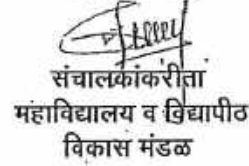 संचालकांकरीता
महाविद्यालय व विद्यापीठ
विकास मंडळ